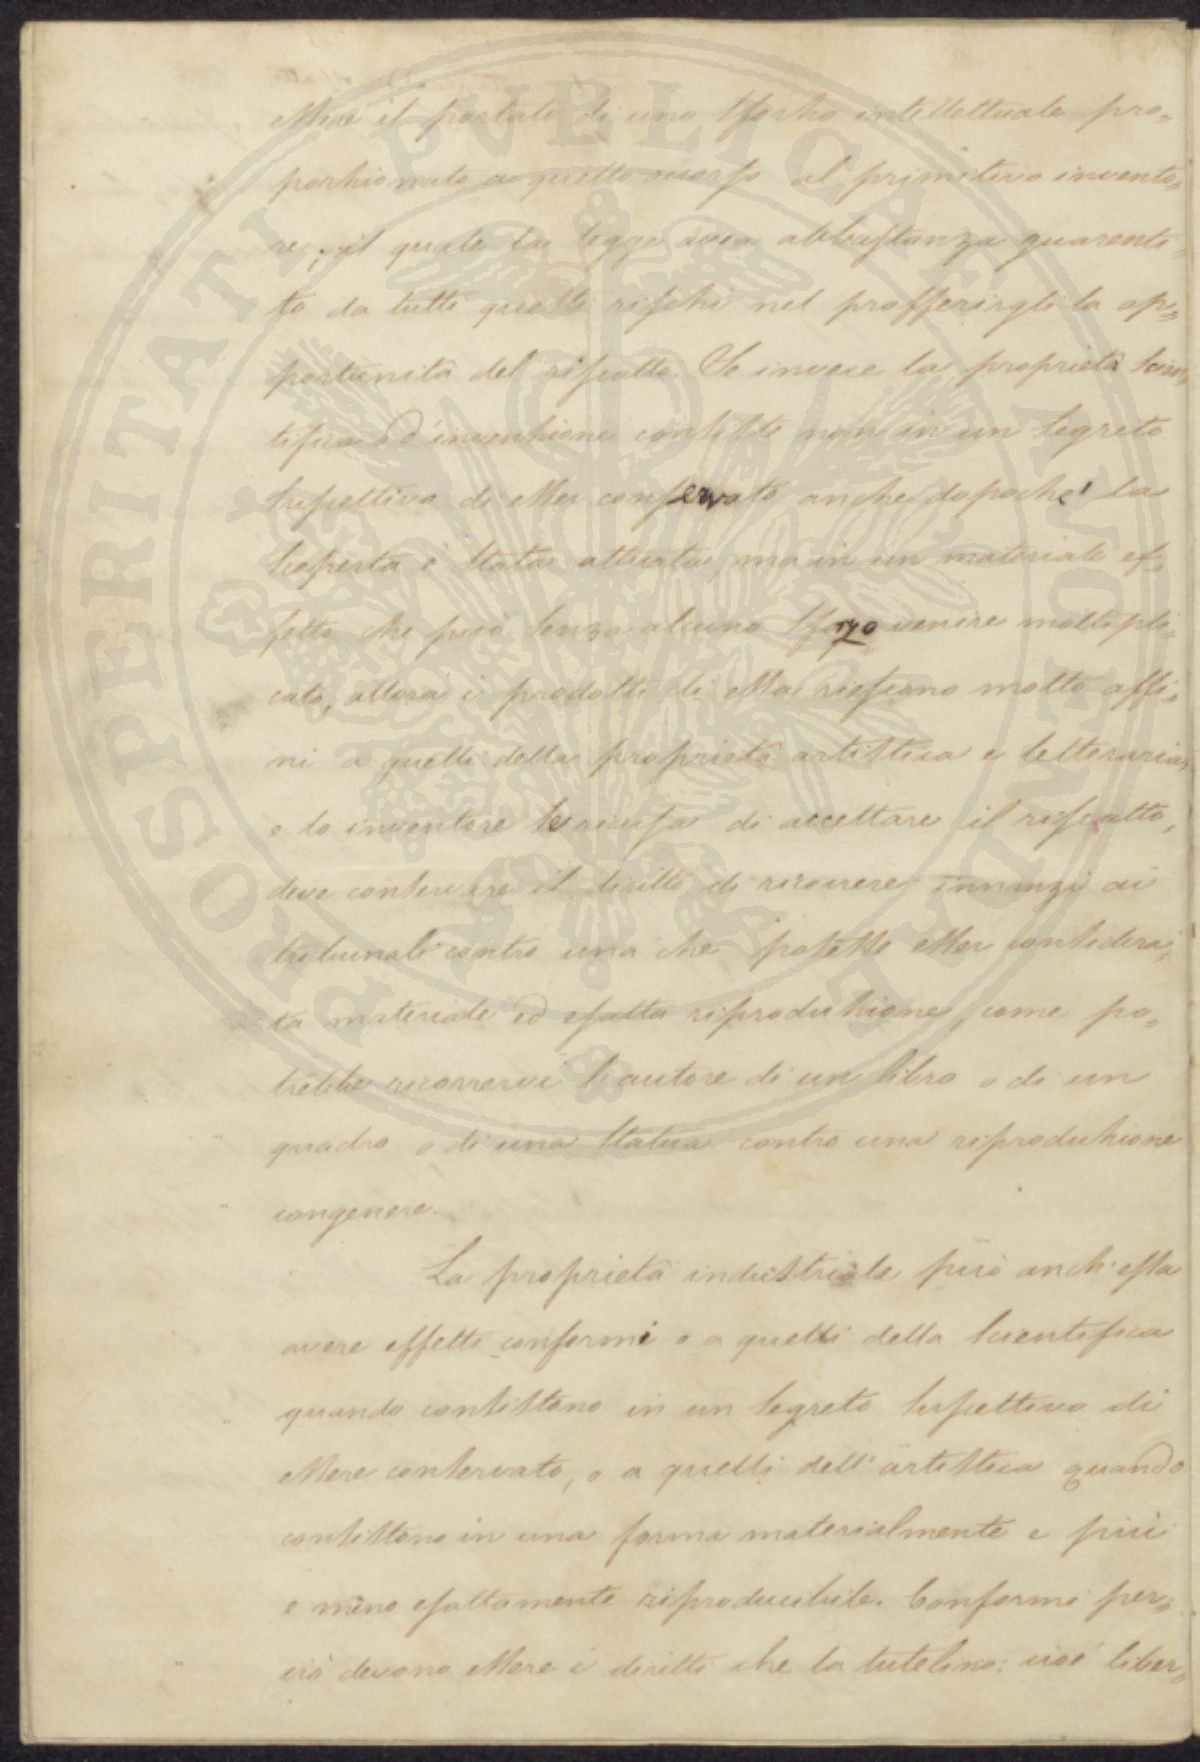 essere il portato di uno sforzo intellettuale pro=
porzionato a quello occorso al primitivo invento=
re; il quale la legge avea abbastanza guarenti=
to da tutti quelli rischi nel profferirgli la op=
portunità del riscatto. Se invece la proprietà scien=
tifica o d'invenzione consiste non in un segreto
suscettivo di esser conservato anche dopochè la
scoperta è stata attuata, ma in un materiale ef=
fetto, che può senza alcuno sforzo venire moltepli=
cato, allora i prodotti di essa riescono molto affi=
ni a quelli della proprietà artistica e letteraria,
e lo inventore se ricusa di accettare il riscatto,
deve conservare il diritto di ricorrere innanzi ai
tribunali contro una che potesse esser considera=
ta materiale ed esatta riproduzione, come po=
trebbe ricorrervi l'autore di un libro o di un
quadro o di una statua contro una riproduzione
congenere.
La proprietà industriale può anch'essa
avere effetti conformi o a quelli della scientifica
quando consistono in un segreto suscettivo di
essere conservato, o a quelli dell'artistica quando
consistono in una forma materialmente e più
e meno esattamente riproducibile. Conformi per=
ciò devono essere i diritti che la tutelino: cioè liber=
PROSPERITATI PVBLICAE